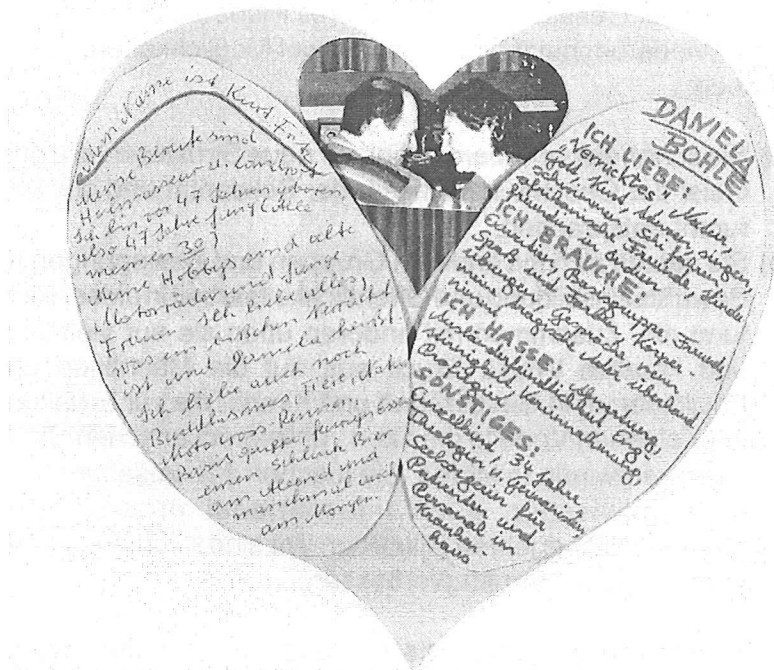 Mein Name ist Kurt Fritz
Meine Berufe sind
Hufinassör u. Landpost
Ich bin vor 47 Jahren geboren
also 47 Jahre jung (Alle
meinen 30)
Meine Hobbys sind alte
Motorräder und junge
Frauen. Ich liebe alles,
was ein bisschen Verrückt
ist und Daniela heisst.
Ich liebe auch noch
Buddhismus, Tiere, Natur
Moto cross-Rennen,
Basisgruppe, feines Essen
einen Schluck Bier
am Abend und
manchmal auch
am Morgen.
DANIELA
BOHLE
ICH LIEBE:
"Verrücktes", Natur,
Gott, Kurt, tanzen, singen,
schwimmen, Ski fahren,
afrikanische Freunde, Kinder
Freunden in Indien
ICH BRAUCHE:
Eucharistie, Basisgruppe, Freunde,
Spass und Fasten, Körper-
übungen, Gespräche, mein
Auto überland
ICH HASSE: Abwertung,
Ausländerfeindlichkeit, Eng-
stirnigkeit, Vereinnahmung,
Profitgier,
SONSTIGES:
Einzelkind, 34 Jahre,
Theologin u. Germanistin,
Seelsorgerin für
Patienten und
Personal im
Kranken-
haus